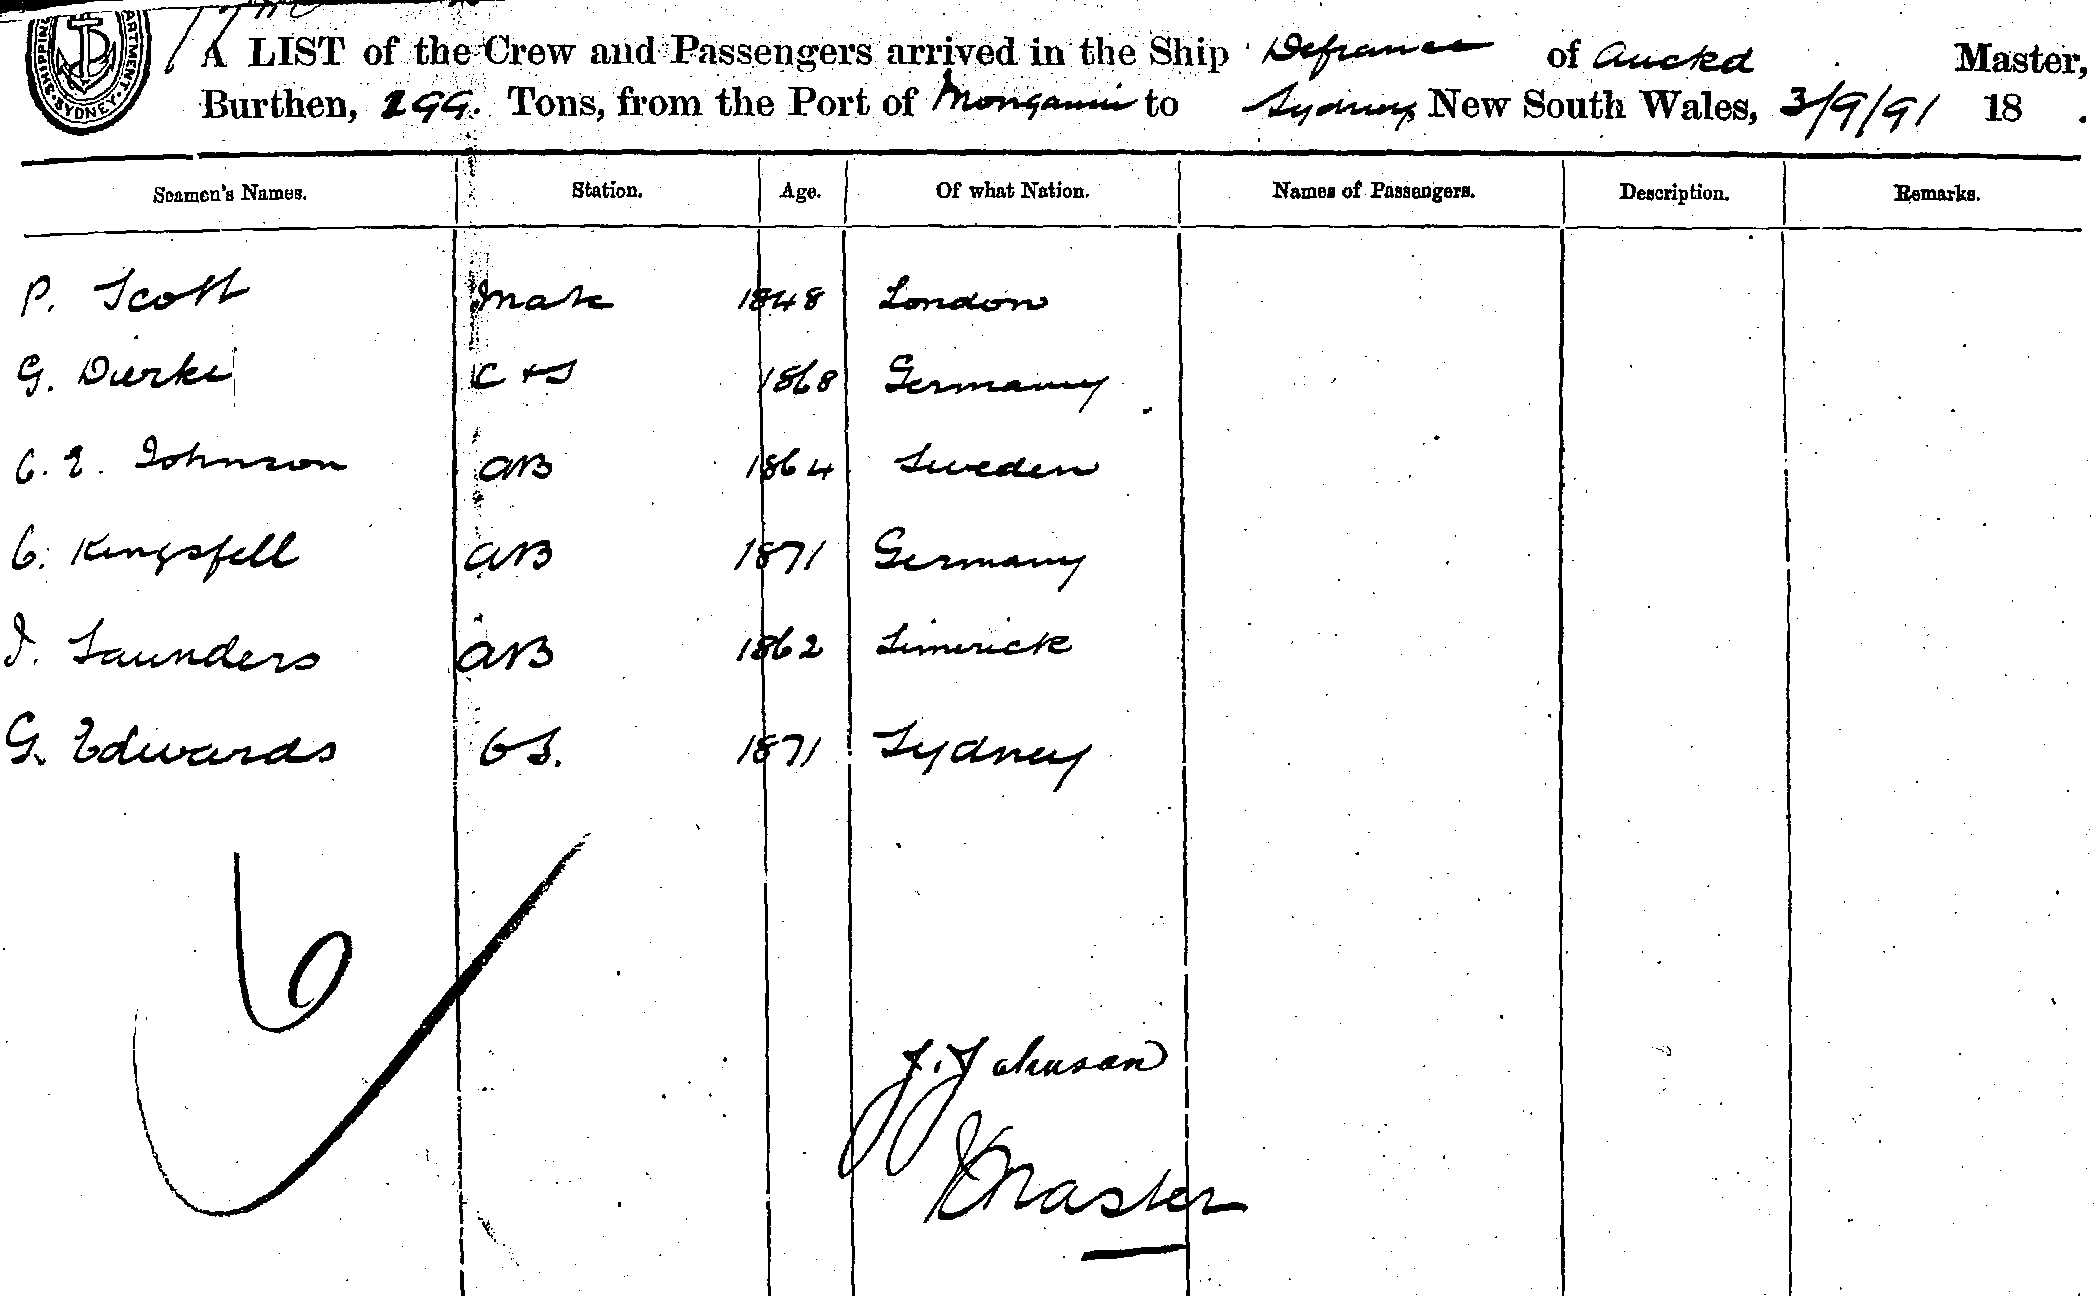 A LIST of the Crew and Passengers arrived in the Ship Defiance of Auckd Master,
Burthen, 299. Tons, from the Port of to Sydney New South Wales, 3/9/91 18 .
Seamen's Names. Station. Age. Of what Nation. Names of Passengers. Description. Remarks.
P. Scott Mate 1848 London
G. Dierke C & S 1868 Germany
C. E. Johnson AB 1864 Sweden
C. Kingsfell AB 1871 Germany
J. Saunders AB 1862 Limerick
G. Edwards OS. 1871 Sydney
6
J. Johnson
Master